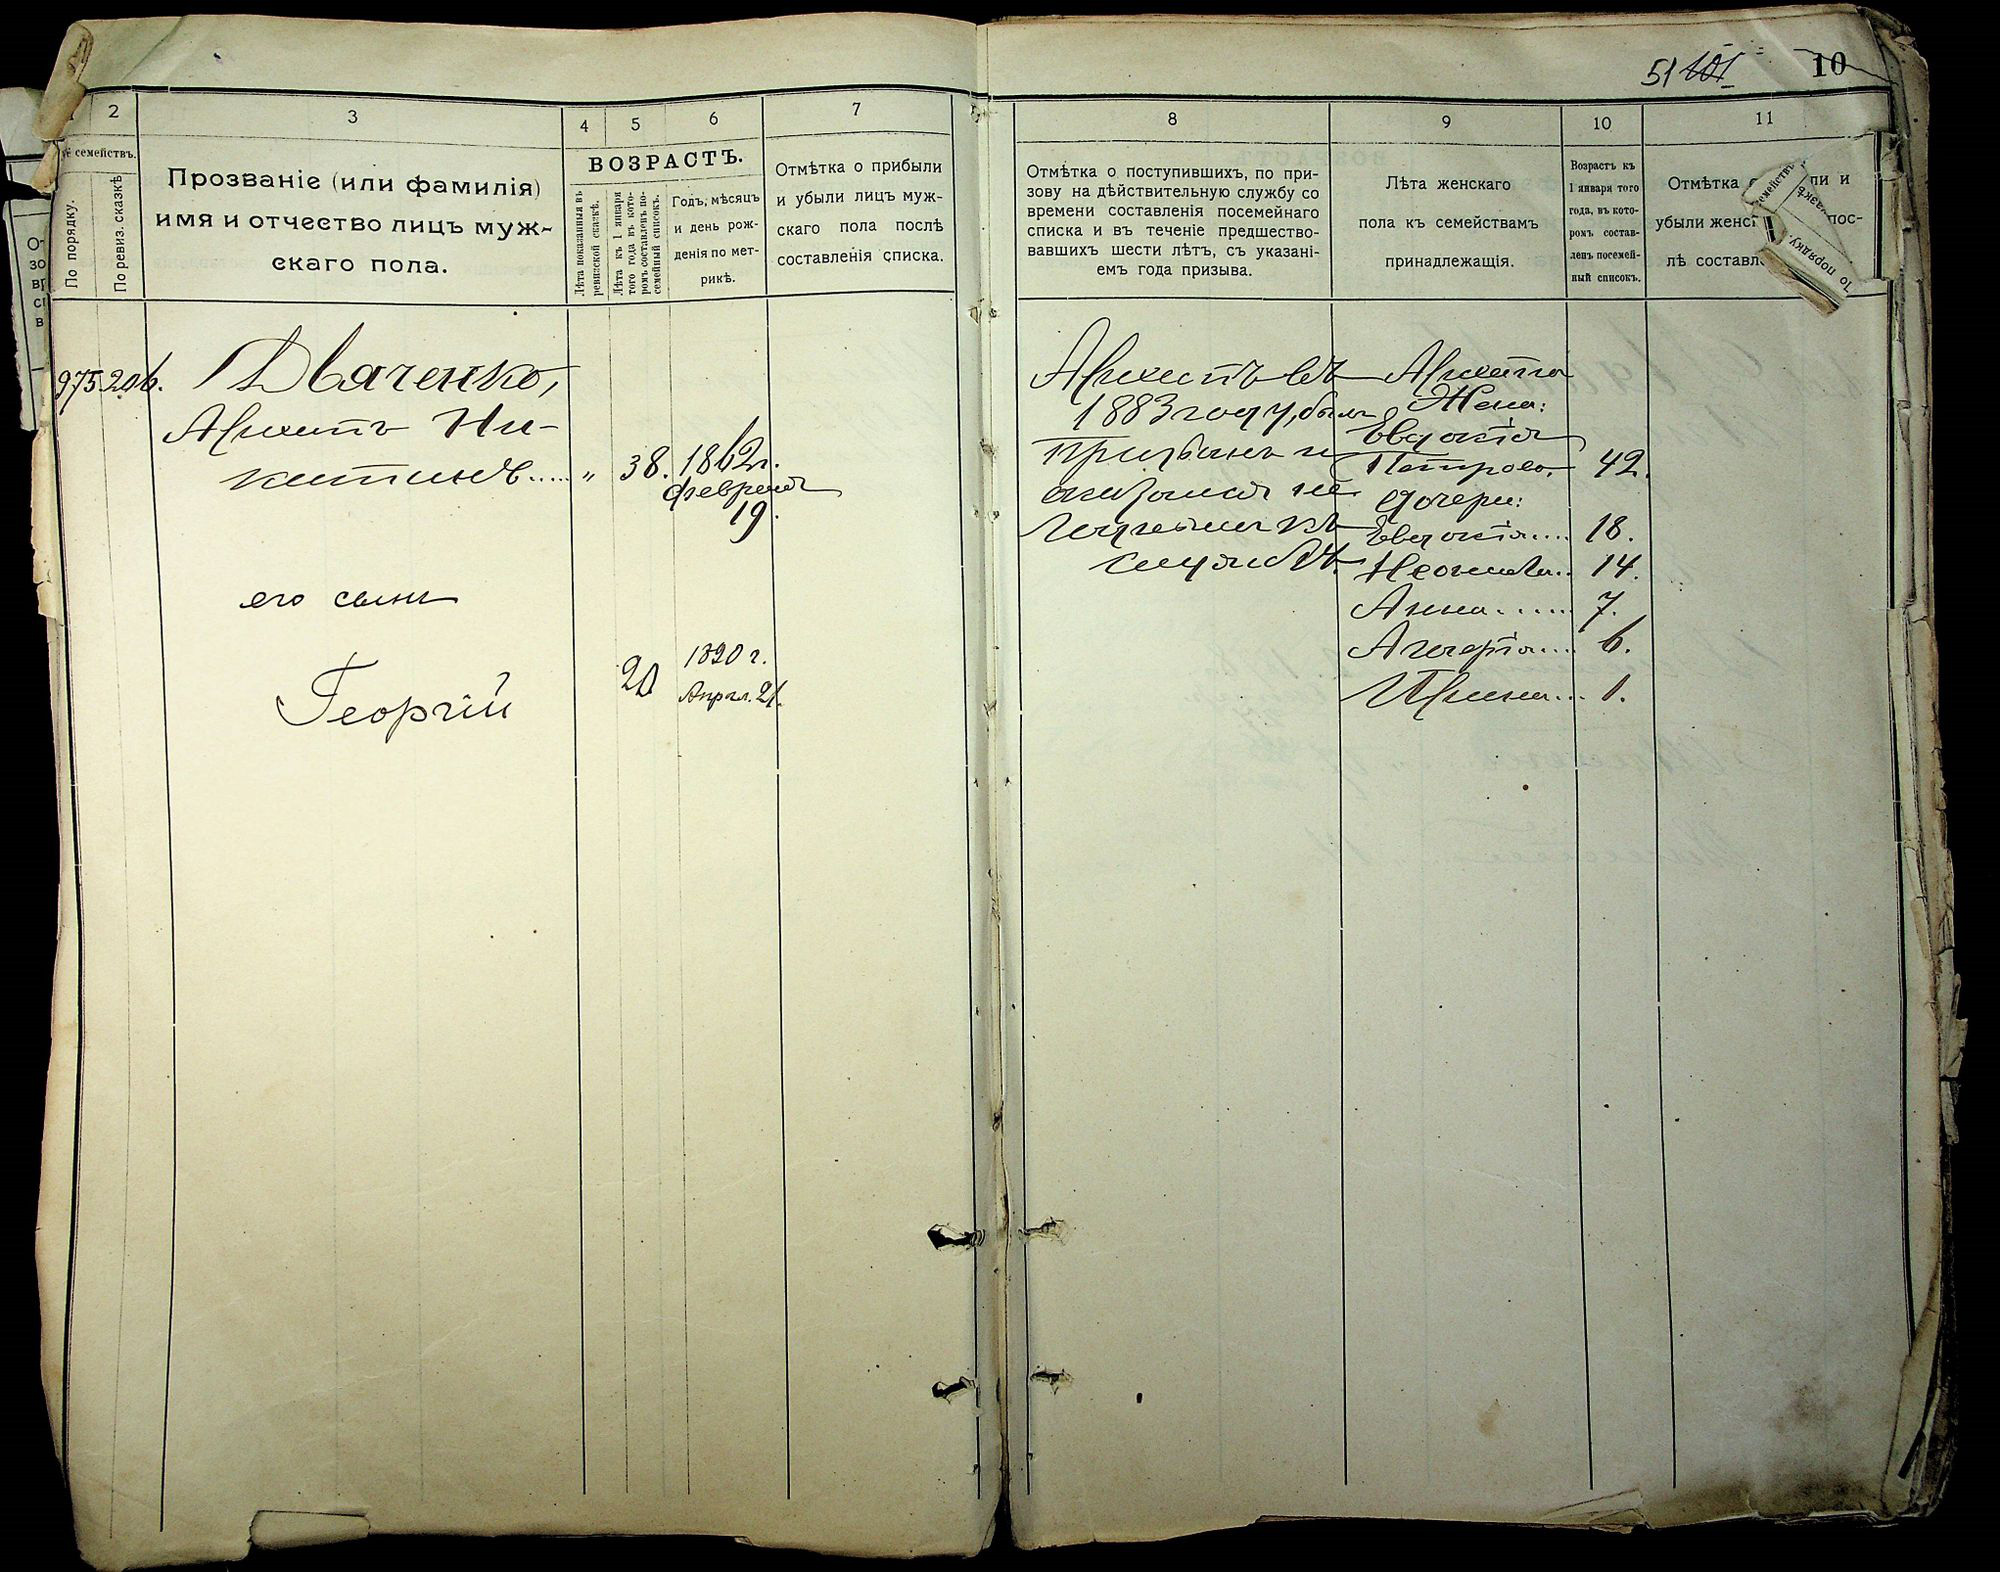 51 101 10
1 2 3 4 5 6 7
№ семействъ.
По порядку.
По ревиз. сказкѣ
Прозваніе (или фамилія)
имя и отчество лицъ муж-
скаго пола.
ВОЗРАСТЪ.
Лѣта показанныя въ
ревизской сказкѣ.
Лѣта къ 1 января
того года въ кото-
ромъ составленъ по-
семейный списокъ.
Годъ, мѣсяцъ
и день рож-
денія по мет-
рикѣ.
Отмѣтка о прибыли
и убыли лицъ муж-
скаго пола послѣ
составленія списка.
975 206. Дяченко,
Архипъ Ни-
китинъ..... „ 38. 1862 г.
февраля
19.
его сынъ
Георгій 20 1820 г.
Апрл. 21.
8 9 10 11
Отмѣтка о поступившихъ, по при-
зову на дѣйствительную службу со
времени составленія посемейнаго
списка и въ теченіе предшество-
вавшихъ шести лѣтъ, съ указані-
емъ года призыва.
Лѣта женскаго
пола къ семействамъ
принадлежащія.
Возрастъ къ
1 января того
года, въ кото-
ромъ состав-
ленъ посемей-
ный списокъ.
Отмѣтка о пи и
убыли женс пос-
лѣ составл
семействъ
сказкѣ
По порядку.
Архипъ въ
1883 году, былъ
призванъ и
оказался не
годнымъ къ
службѣ.
Архипа
Жена:
Евдокія
Петрова. 42.
дочери:
Евдокія.... 18.
14.
Анна...... 7.
Агафія.... 6.
Ирина... 1.